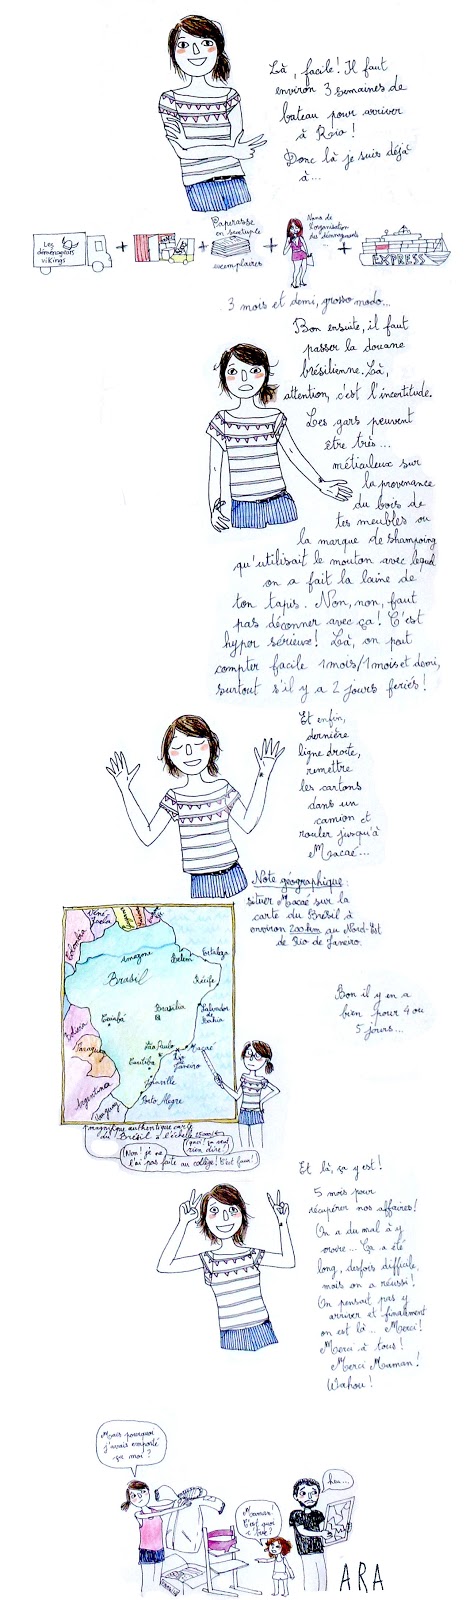 Là, facile! Il faut
environ 3 semaines de
bateau pour arriver
à Rio!
Donc là je suis déjà
à...
Les
déménageurs
vikings
+
+
Paperasse
en
exemplaires
+
Nana de
l'organisation
des déménagements
+
EXPRESS
3 mois et demi, grosso modo...
Bon ensuite, il faut
passer la douane
brésilienne. Là,
attention, c'est l'incertitude.
Les gars peuvent
être très...
méticuleux sur
la provenance
du bois de
tes meubles ou
la marque de shampoing
qu'utilisait le mouton avec lequel
on a fait la laine de
ton tapis. Non, non, faut
pas déconner avec ça! C'est
hyper sérieux! Là, on peut
compter facile 1 mois/1 mois et demi,
surtout s'il y a 2 jours fériés!
Et enfin,
dernière
ligne droite,
remettre
les cartons
dans un
camion et
rouler jusqu'à
Macaé...
Note géographique:
situer Macaé sur la
carte du Brésil à
environ 200 km au Nord-Est
de Rio de Janeiro.
Colombia
Véné
zuela
Amazone
Belém
Fortaleza
Brasil
Récife
Brasilia
Salvador
de
Bahia
Cuiabá
Bolivia
Paraguay
São Paulo
Macaé
Curitiba
Rio de
Janeiro
Joinville
Argentina
Porto Alegre
Uruguay
Bon il y en a
bien pour 4 ou
5 jours...
magnifique authentique carte
du Brésil à l'échelle
(quoi! ça veut
rien dire!)
(Non! je ne
l'ai pas faite au collège! C'est faux!)
Et là, ça y est!
5 mois pour
récupérer nos affaires!
On a du mal à y
croire... Ça a été
long, desfois difficile,
mais on a réussi!
On pensait pas y
arriver et finalement
on est là... Merci!
Merci à tous!
Merci Maman!
Wahou!
Mais pourquoi
j'avais emporté
ça moi?
Maman!
C'est quoi
?
heu...
ARA